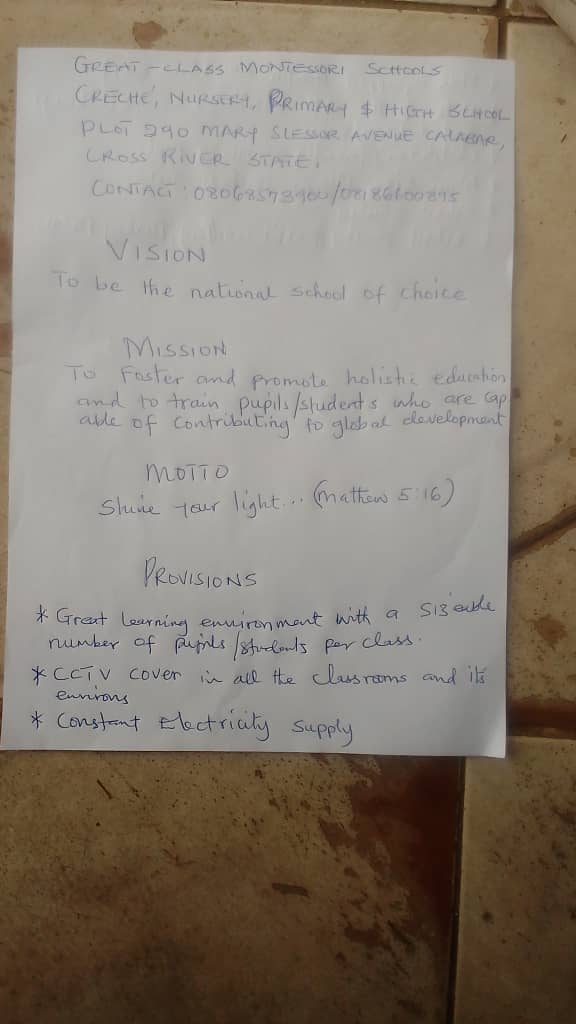 GREAT-CLASS MONTESSORI SCHOOLS
CRECHE, NURSERY, PRIMARY $ HIGH SCHOOL
PLOT 290 MARY SLESSOR AVENUE CALABAR,
CROSS RIVER STATE.
CONTACT:
VISION
To be the national school of choice
MISSION
To Foster and promote holistic education
and to train pupils/students who are cap
able of contributing to global development
MOTTO
Shine your light... (Mathew 5:16)
PROVISIONS
* Great learning environment with a sizeable
number of pupils/students per class.
* CCTV cover in all the classrooms and its
environs
* Constant Electricity Supply